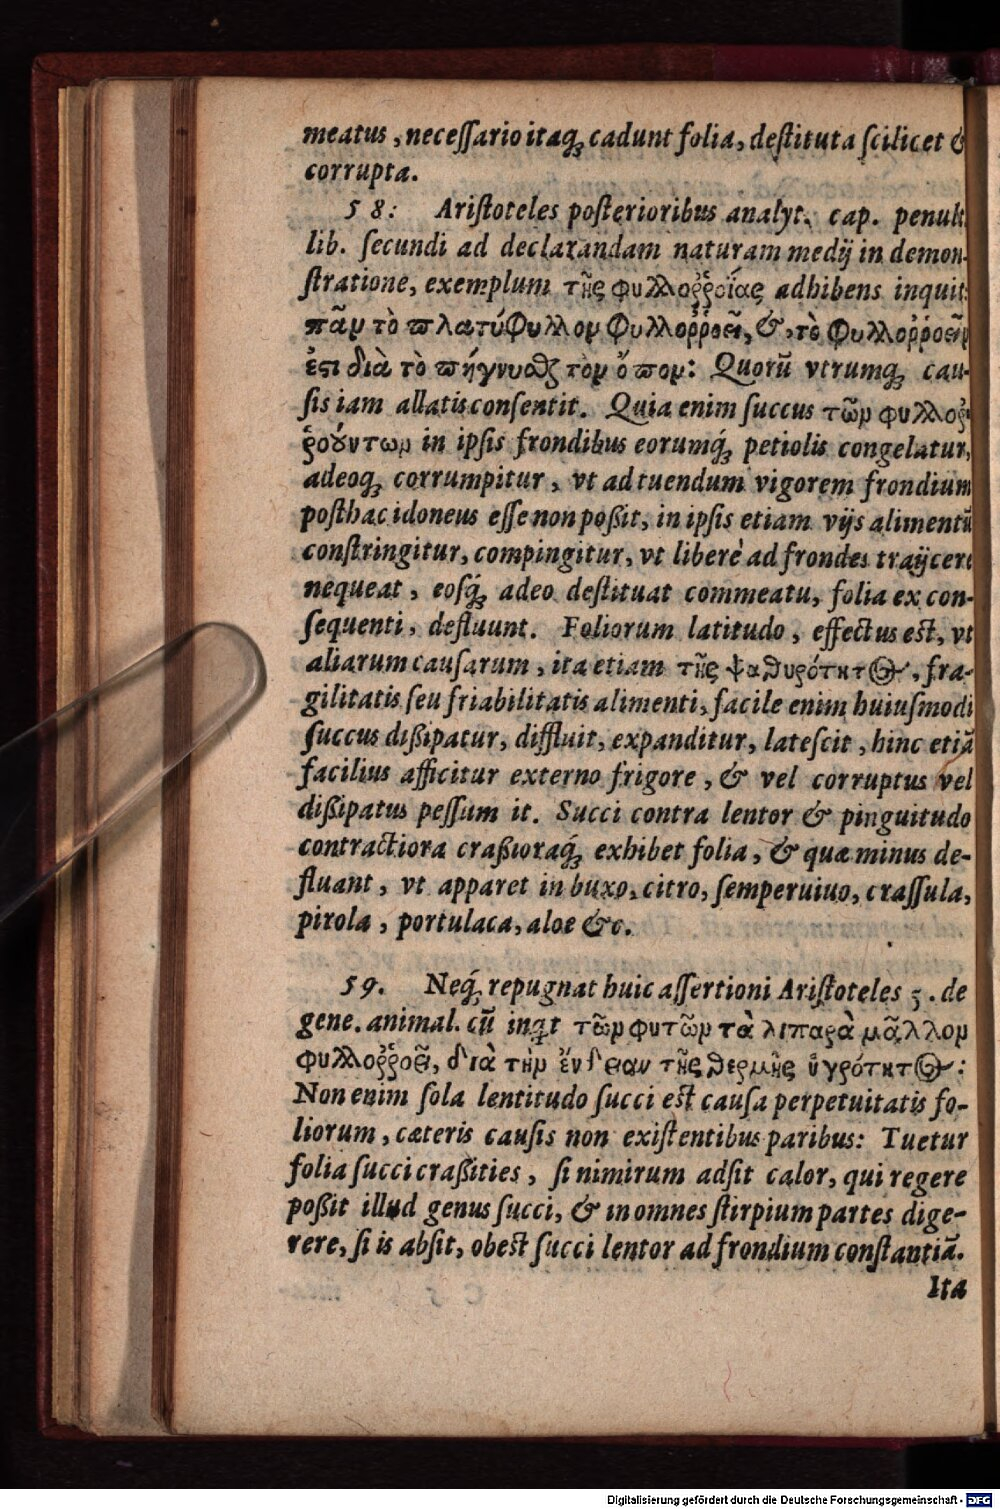 meatus, neceſſario itaq́ꝫ cadunt folia, deſtituta ſcilicet &
corrupta.
58: Ariſtoteles poſterioribus analyt. cap. penult.
lib. ſecundi ad declarandam naturam medij in demon-
ſtratione, exemplum τῆς φυλλοῤῥοίας adhibens inquit:
πᾶν τὸ πλατύφυλλον φυλλοῤῥοεῖ, &, τὸ φυλλοῤῥοεῖν
ἐϛι διὰ τὸ πήγνυσθαι τὸν ὅπον: Quorū vtrumqꝫ cau-
ſis iam allatis conſentit. Quia enim ſuccus τῶν φυλλοῤ-
ῥούντων in ipſis frondibus eorumq́ꝫ petiolis congelatur,
adeoqꝫ corrumpitur, vt ad tuendum vigorem frondium
poſthac idoneus eſſe non poßit, in ipſis etiam vijs alimentū
conſtringitur, compingitur, vt liberè ad frondes traijcere
nequeat, eoſq́ꝫ adeo deſtituat commeatu, folia ex con-
ſequenti, defluunt. Foliorum latitudo, effectus eſt, vt
aliarum cauſarum, ita etiam τῆς ψαθυρότητος, fra-
gilitatis ſeu friabilitatis alimenti, facile enim huiuſmodi
ſuccus dißipatur, diffluit, expanditur, lateſcit, hinc etiā
facilius afficitur externo frigore, & vel corruptus vel
dißipatus peſſum it. Succi contra lentor & pinguitudo
contractiora craßioraq́ꝫ exhibet folia, & quæ minus de-
fluant, vt apparet in buxo, citro, ſemperuiuo, craſſula,
pirola, portulaca, aloe &c.
59. Neq́ꝫ repugnat huic aſſertioni Ariſtoteles 5. de
gene. animal. cū inqt τῶν φυτῶν τὰ λιπαρὰ μᾶλλον
φυλλοῤῥοεῖ, διὰ τὴν ἔνδειαν τῆς θερμῆς ὑγρότητος:
Non enim ſola lentitudo ſucci eſt cauſa perpetuitatis fo-
liorum, cæteris cauſis non exiſtentibus paribus: Tuetur
folia ſucci craßities, ſi nimirum adſit calor, qui regere
poßit illud genus ſucci, & in omnes ſtirpium partes dige-
rere, ſi is abſit, obeſt ſucci lentor ad frondium conſtantiā.
Ita
Digitalisierung gefördert durch die Deutsche Forschungsgemeinschaft - DFG